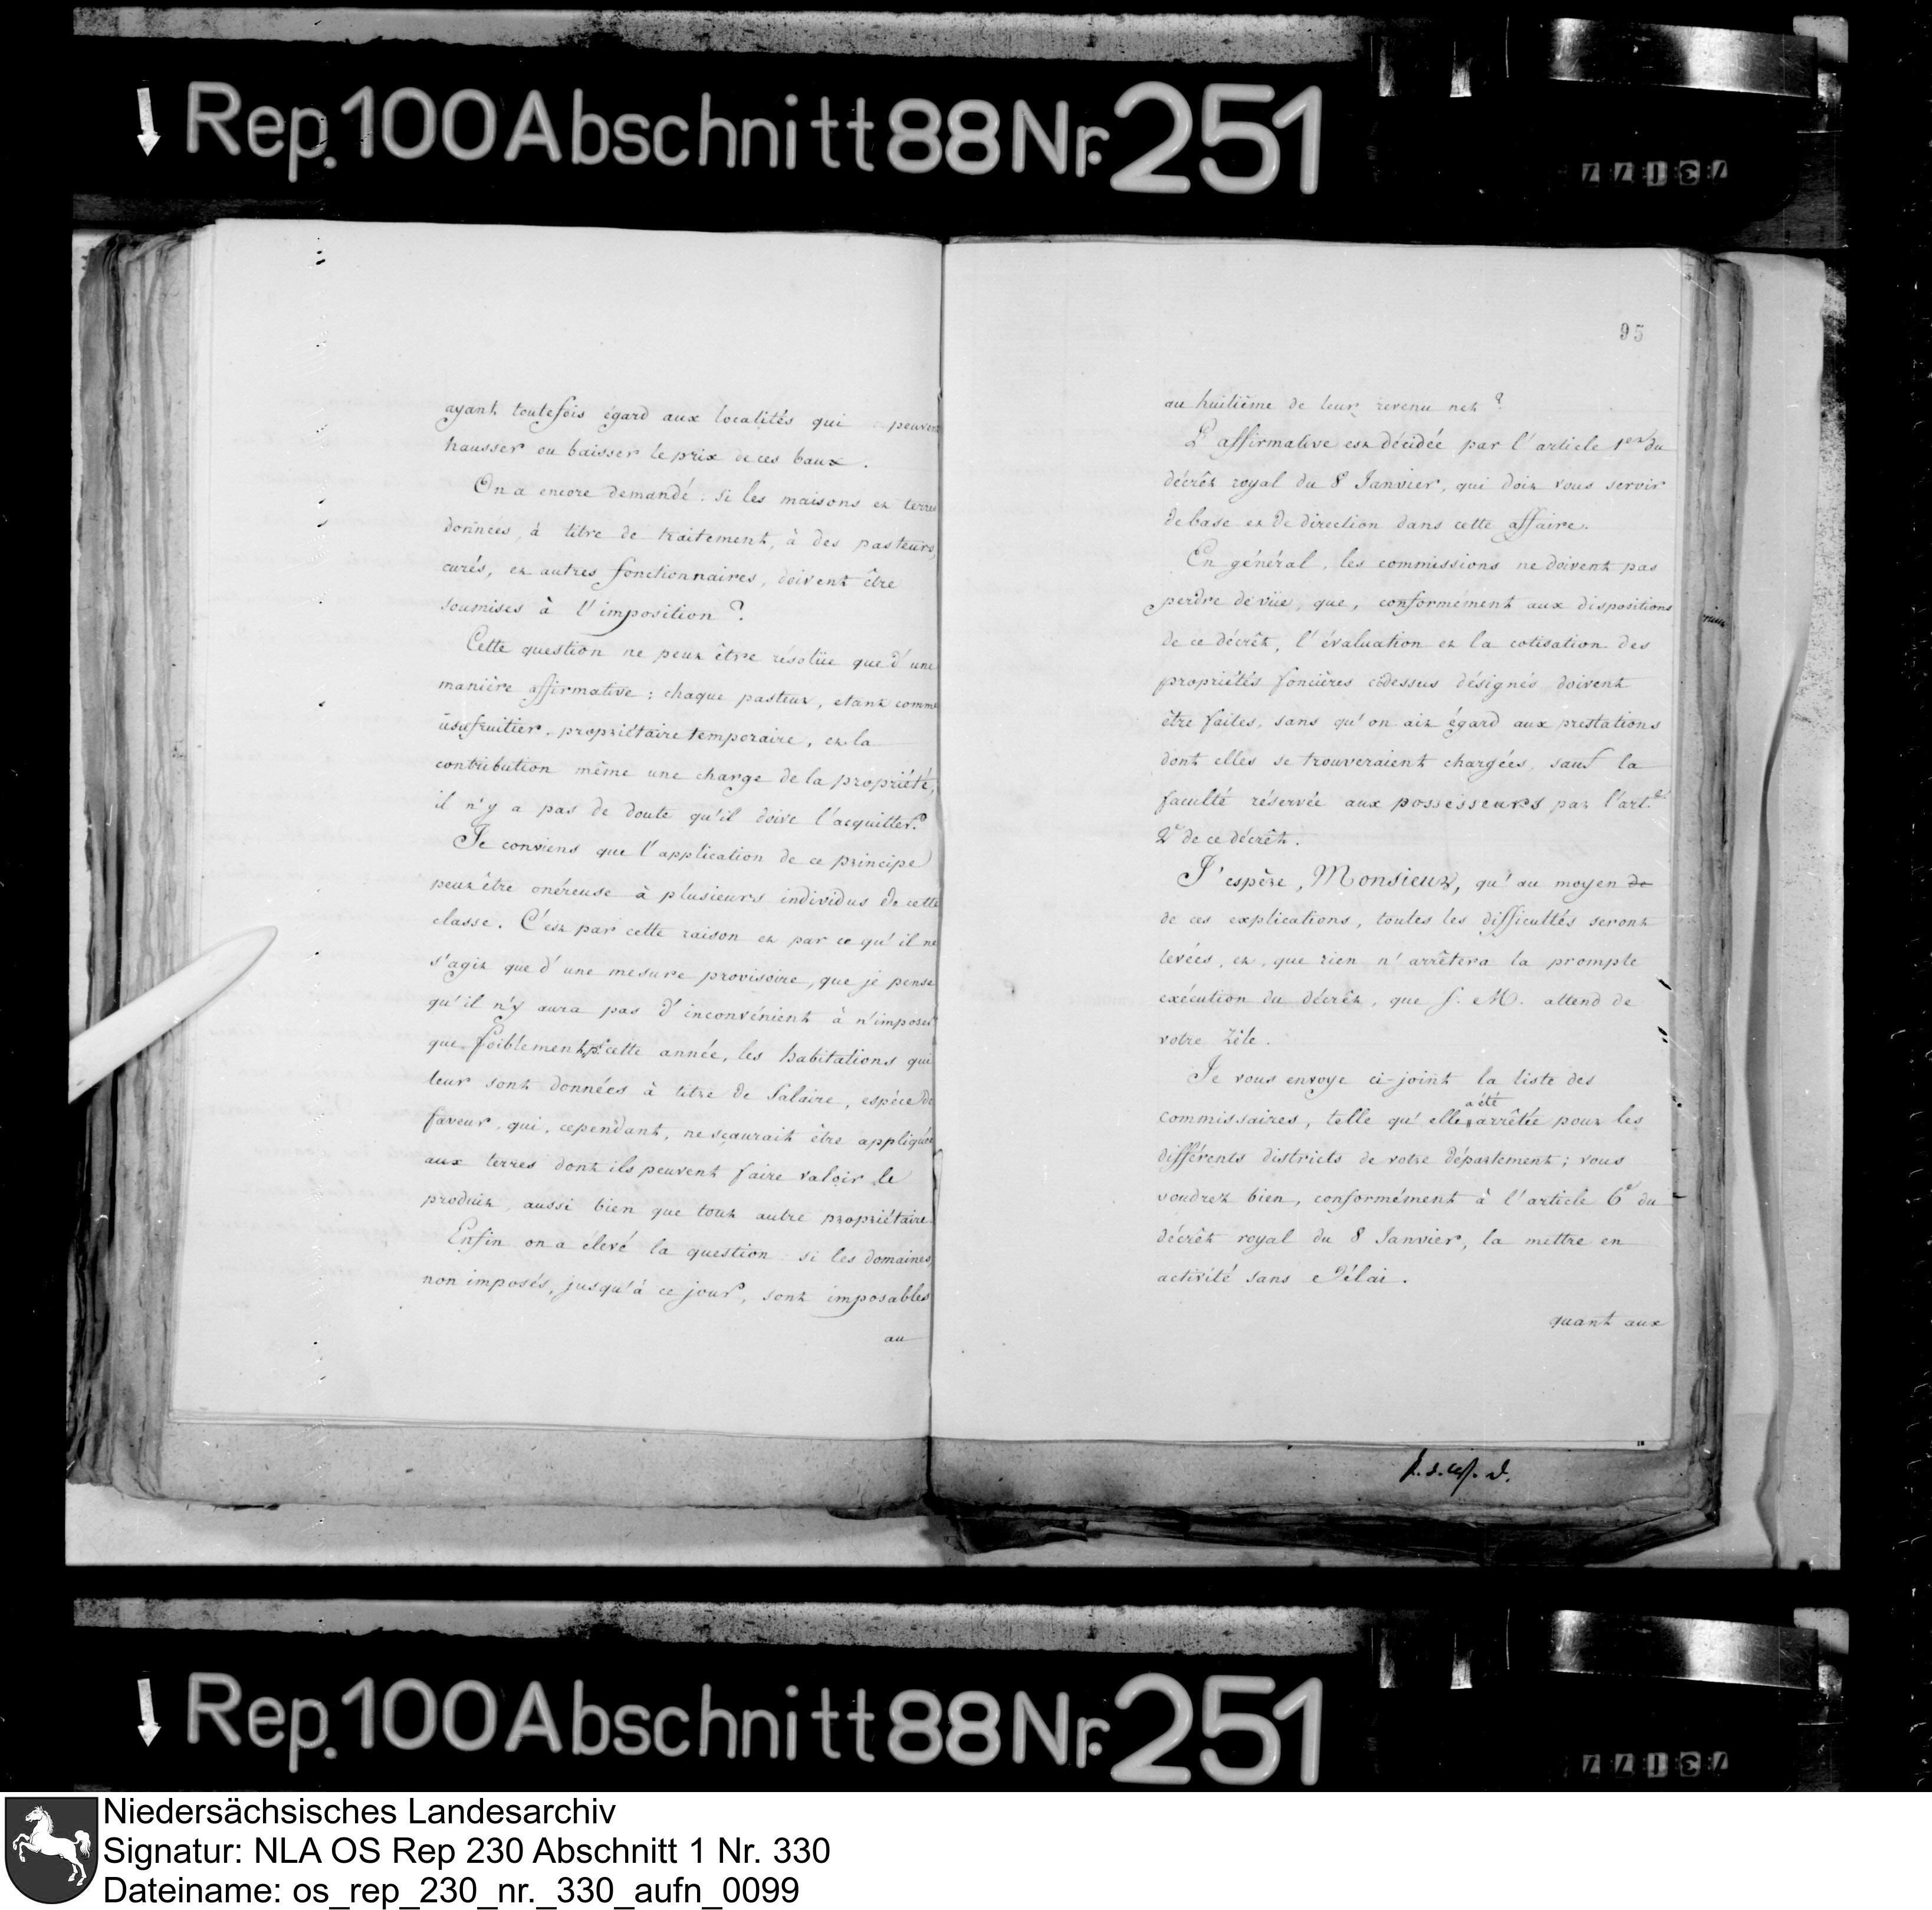 Rep. 100 Abschnitt 88 Nr. 251
ayant toutefois égard aux localités qui peuvent
hausser ou baisser le prix de ces baux.
On a encore demandé: si les maisons et terres
données, à titre de traitement, à des pasteurs,
curés, et autres fonctionnaires, doivent être
soumises à l'imposition?
Cette question ne peut être résolüe que d'une
manière affirmative: chaque pasteur, etant comme
usufruitier, propriétaire temporaire, et la
contribution même une charge de la propriété,
il n'y a pas de doute qu'il doive l'acquitter.
Je conviens que l'application de ce principe
peut être onéreuse à plusieurs individus de cette
classe. C'est par cette raison et par ce qu'il ne
s'agit que d'une mesure provisoire, que je pense
qu'il n'y aura pas d'inconvénient à n'imposer
que foiblement pr. cette année, les habitations qui
leur sont données à titre de Salaire, espèce de
faveur, qui, cependant, ne sçaurait être appliquée
aux terres dont ils peuvent faire valoir le
produit, aussi bien que tout autre propriétaire.
Enfin on a élevé la question si les domaines,
non imposés, jusqu'à ce jour, sont imposables
au
95
au huitième de leur revenu net?
L'affirmative est décidée par l'article 1er du
décrêt royal du 8 Janvier, qui doit vous servir
de base et de direction dans cette affaire.
En général, les commissions ne doivent pas
perdre de vüe, que, conformément aux dispositions
de ce décrêt, l'évaluation et la cotisation des
propriétés foncières cidessus désignés doivent
être faites, sans qu'on ait égard aux prestations
dont elles se trouveraient chargées, sauf la
faculté réservée aux possesseurs par l'art.
2e de ce décrêt.
J'espère, Monsieur, qu'au moyen de
de ces explications, toutes les difficultés seront
levées, et, que rien n'arrêtera la prompte
exécution du décrêt, que S. M. attend de
votre zèle.
Je vous envoye ci-joint la liste des
commissaires, telle qu'elle a été arrêtée pour les
différents districts de votre département; vous
voudrez bien, conformément à l'article 6e du
décrêt royal du 8 Janvier, la mettre en
activité sans délai.
quant aux
Rep. 100 Abschnitt 88 Nr. 251
Niedersächsisches Landesarchiv
Signatur: NLA OS Rep 230 Abschnitt 1 Nr. 330
Dateiname: os_rep_230_nr._330_aufn_0099